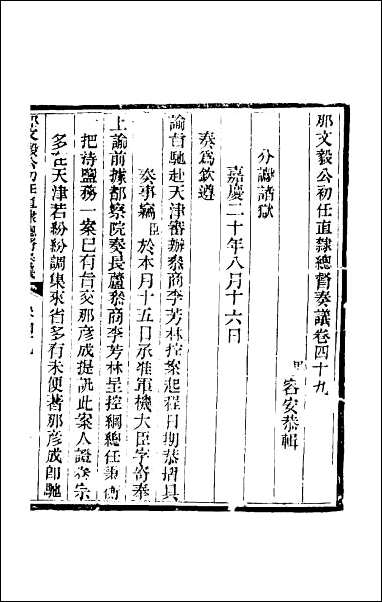 那文毅公初任直隸總督奏議卷四十九
容安恭輯
分讞諸獄
嘉慶二十年八月十六日
奏為欽遵
諭旨馳赴天津審辦叅商李芳林控案起程日期恭摺具
奏事竊臣於本月十五日承准軍機大臣字寄奉
上諭前據都察院奏長蘆叅商李芳林呈控綱總任秉衡
把持鹽務一案已有旨交那彥成提訊此案人證卷宗
多在天津若紛紛調集來省多有未便著那彥成即馳
那文毅公初任直隸總督奏議